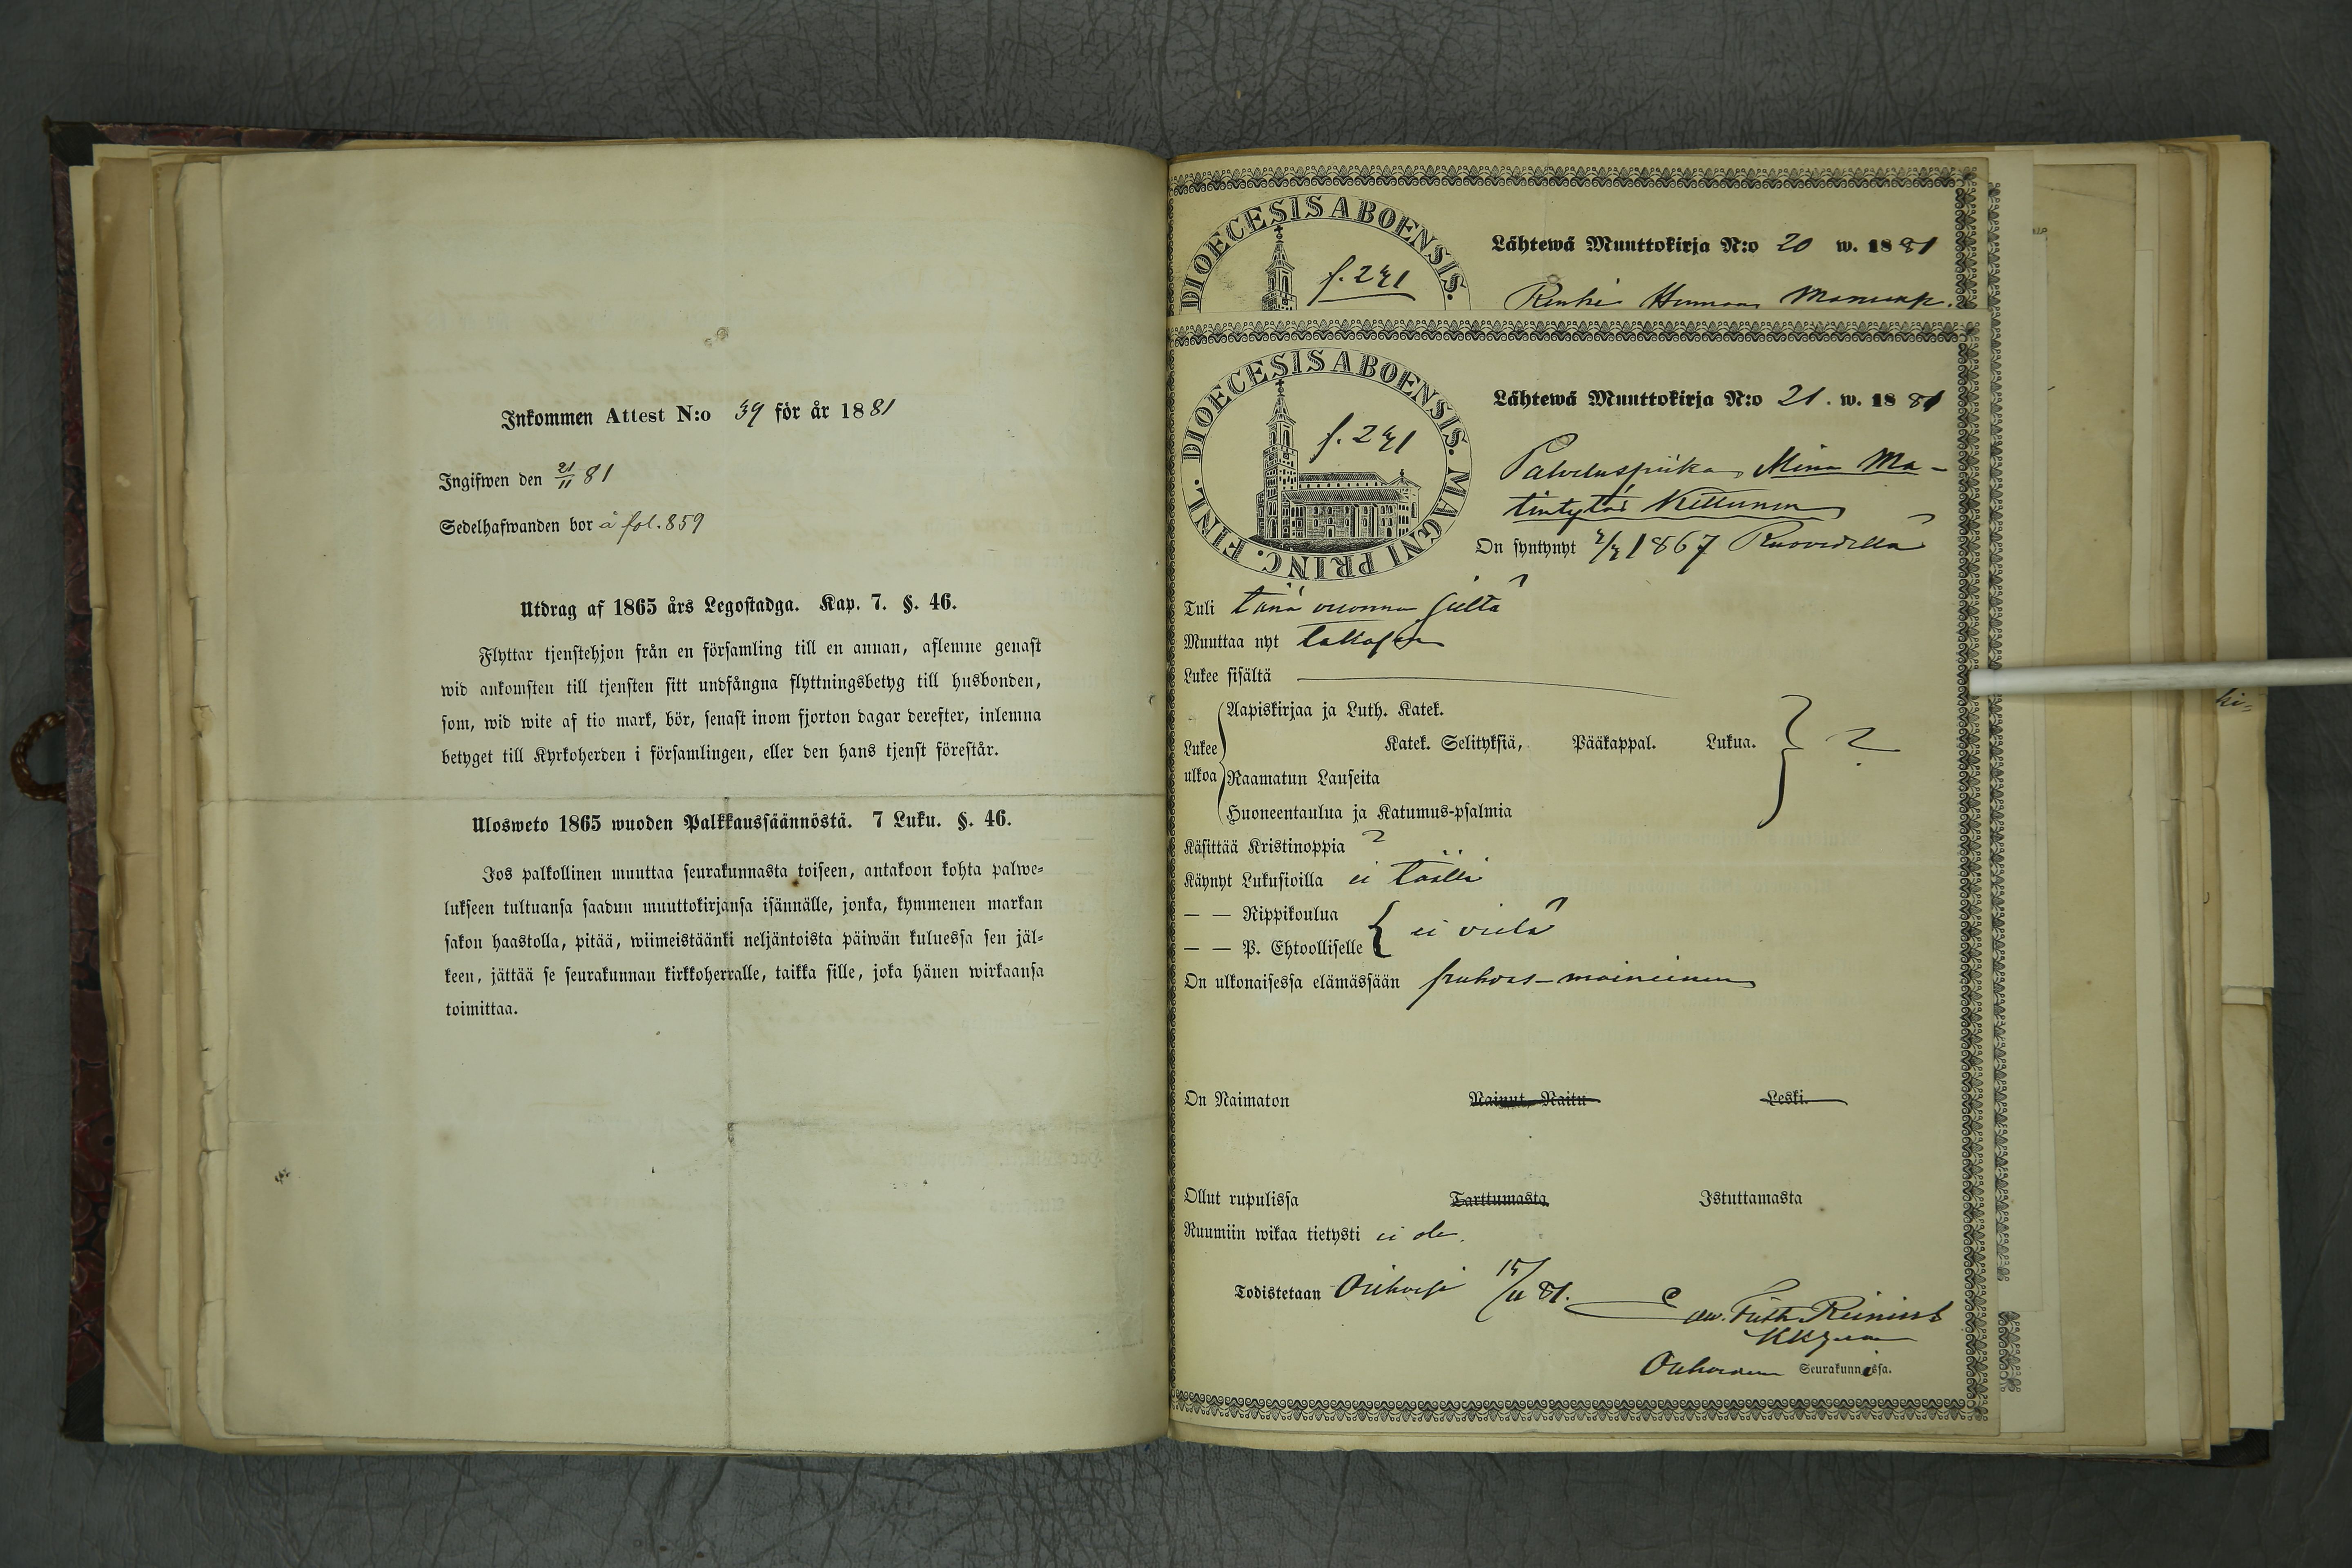 Inkommen Attest N:o 39 för år 1881
Ingifwen den 21/11 81
Sedelhafwanden bor å fol. 859
Utdrag af 1865 års Legostadga. Kap. 7. §. 46.
Flyttar tjenstehjon från en församling till en annan, aflemne genast
wid ankomsten till tjensten sitt undfångna flyttningsbetyg till husbonden,
som, wid wite af tio mark, bör, senast inom fjorton dagar derefter, inlemna
betyget till Kyrkoherden i församlingen, eller den hans tjenst förestår.
Ulosweto 1865 wuoden Palkkaussäännöstä. 7 Luku. §. 46.
Jos palkollinen muuttaa seurakunnasta toiseen, antakoon kohta palwe-
lukseen tultuansa saadun muuttokirjansa isännälle, jonka, kymmenen markan
sakon haastolla, pitää, wiimeistäänki neljäntoista päiwän kuluessa sen jäl-
keen, jättää se seurakunnan kirkkoherralle, taikka sille, joka hänen wirkaansa
toimittaa.
DIOECESIS ABOENSIS.
f. 241
Lähtewä Muuttokirja N:o 20 w. 1881
Renki
DIOECESIS ABOENSIS. MAGNI PRINC. FINL.
f. 241
Lähtewä Muuttokirja N:o 21. w. 1881
Palveluspiika Mina Ma-
tintytär Kettunen
On syntynyt 1867 Ruovedellä
Tuli tänä vuonna sieltä
Muuttaa nyt takasin
Lukee sisältä
Lukee ulkoa
Aapiskirjaa ja Luth. Katek.
Katek. Selityksiä, Pääkappal. Lukua. ?
Raamatun Lauseita
Huoneentaulua ja Katumus-psalmia
Käsittää Kristinoppia ?
Käynyt Lukusioilla ei täällä
— — Rippikoulua
ei vielä
— — P. Ehtoolliselle
On ulkonaisessa elämässään puhdas-maineinen
On Naimaton Nainut, Naitu Leski.
Ollut rupulissa Tarttumasta Istuttamasta
Ruumiin wikaa tietysti ei ole.
Todistetaan Orihvesi 15/11 81.
Oriheden Seurakunnassa.